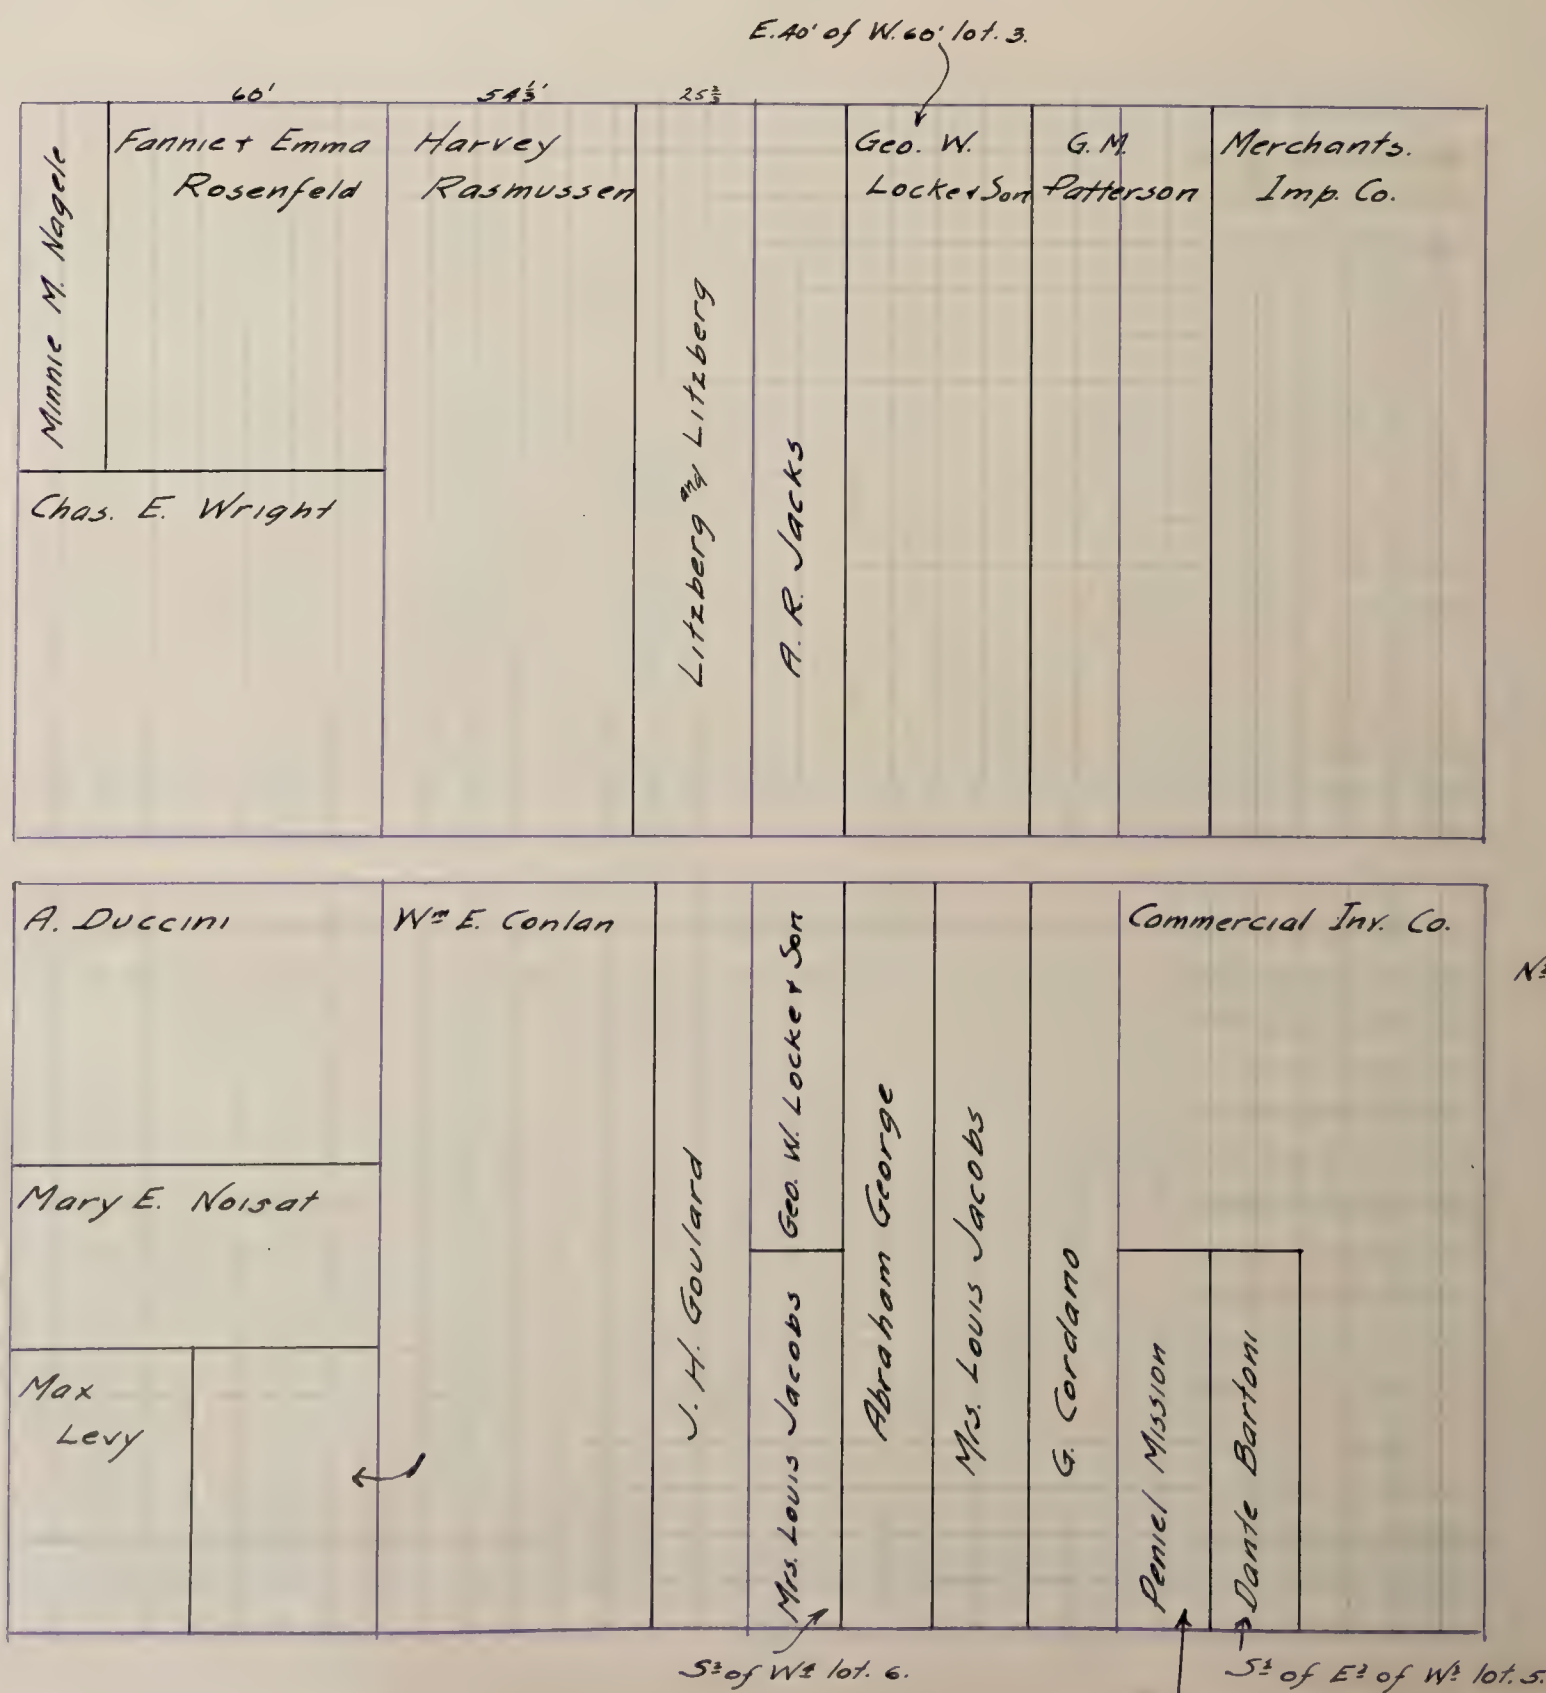 E. 40' of W. 60' lot. 3.
60'
54⅓'
25⅔
Minnie M. Nagele
Fannie & Emma
Rosenfeld
Harvey
Rasmussen
Litzberg and Litzberg
A. R. Jacks
Geo. W.
Locke & Son
G. M.
Patterson
Merchants.
Imp. Co.
Chas. E. Wright
A. Duccini
Wm E. Conlan
J. H. Goulard
Geo. W. Locke & Son
Mrs. Louis Jacobs
Abraham George
Mrs. Louis Jacobs
G. Cordano
Commercial Inv. Co.
Mary E. Noisat
Max
Levy
Peniel Mission
Dante Bartoni
S½ of W¼ lot. 6.
S½ of E½ of W½ lot. 5.
N½